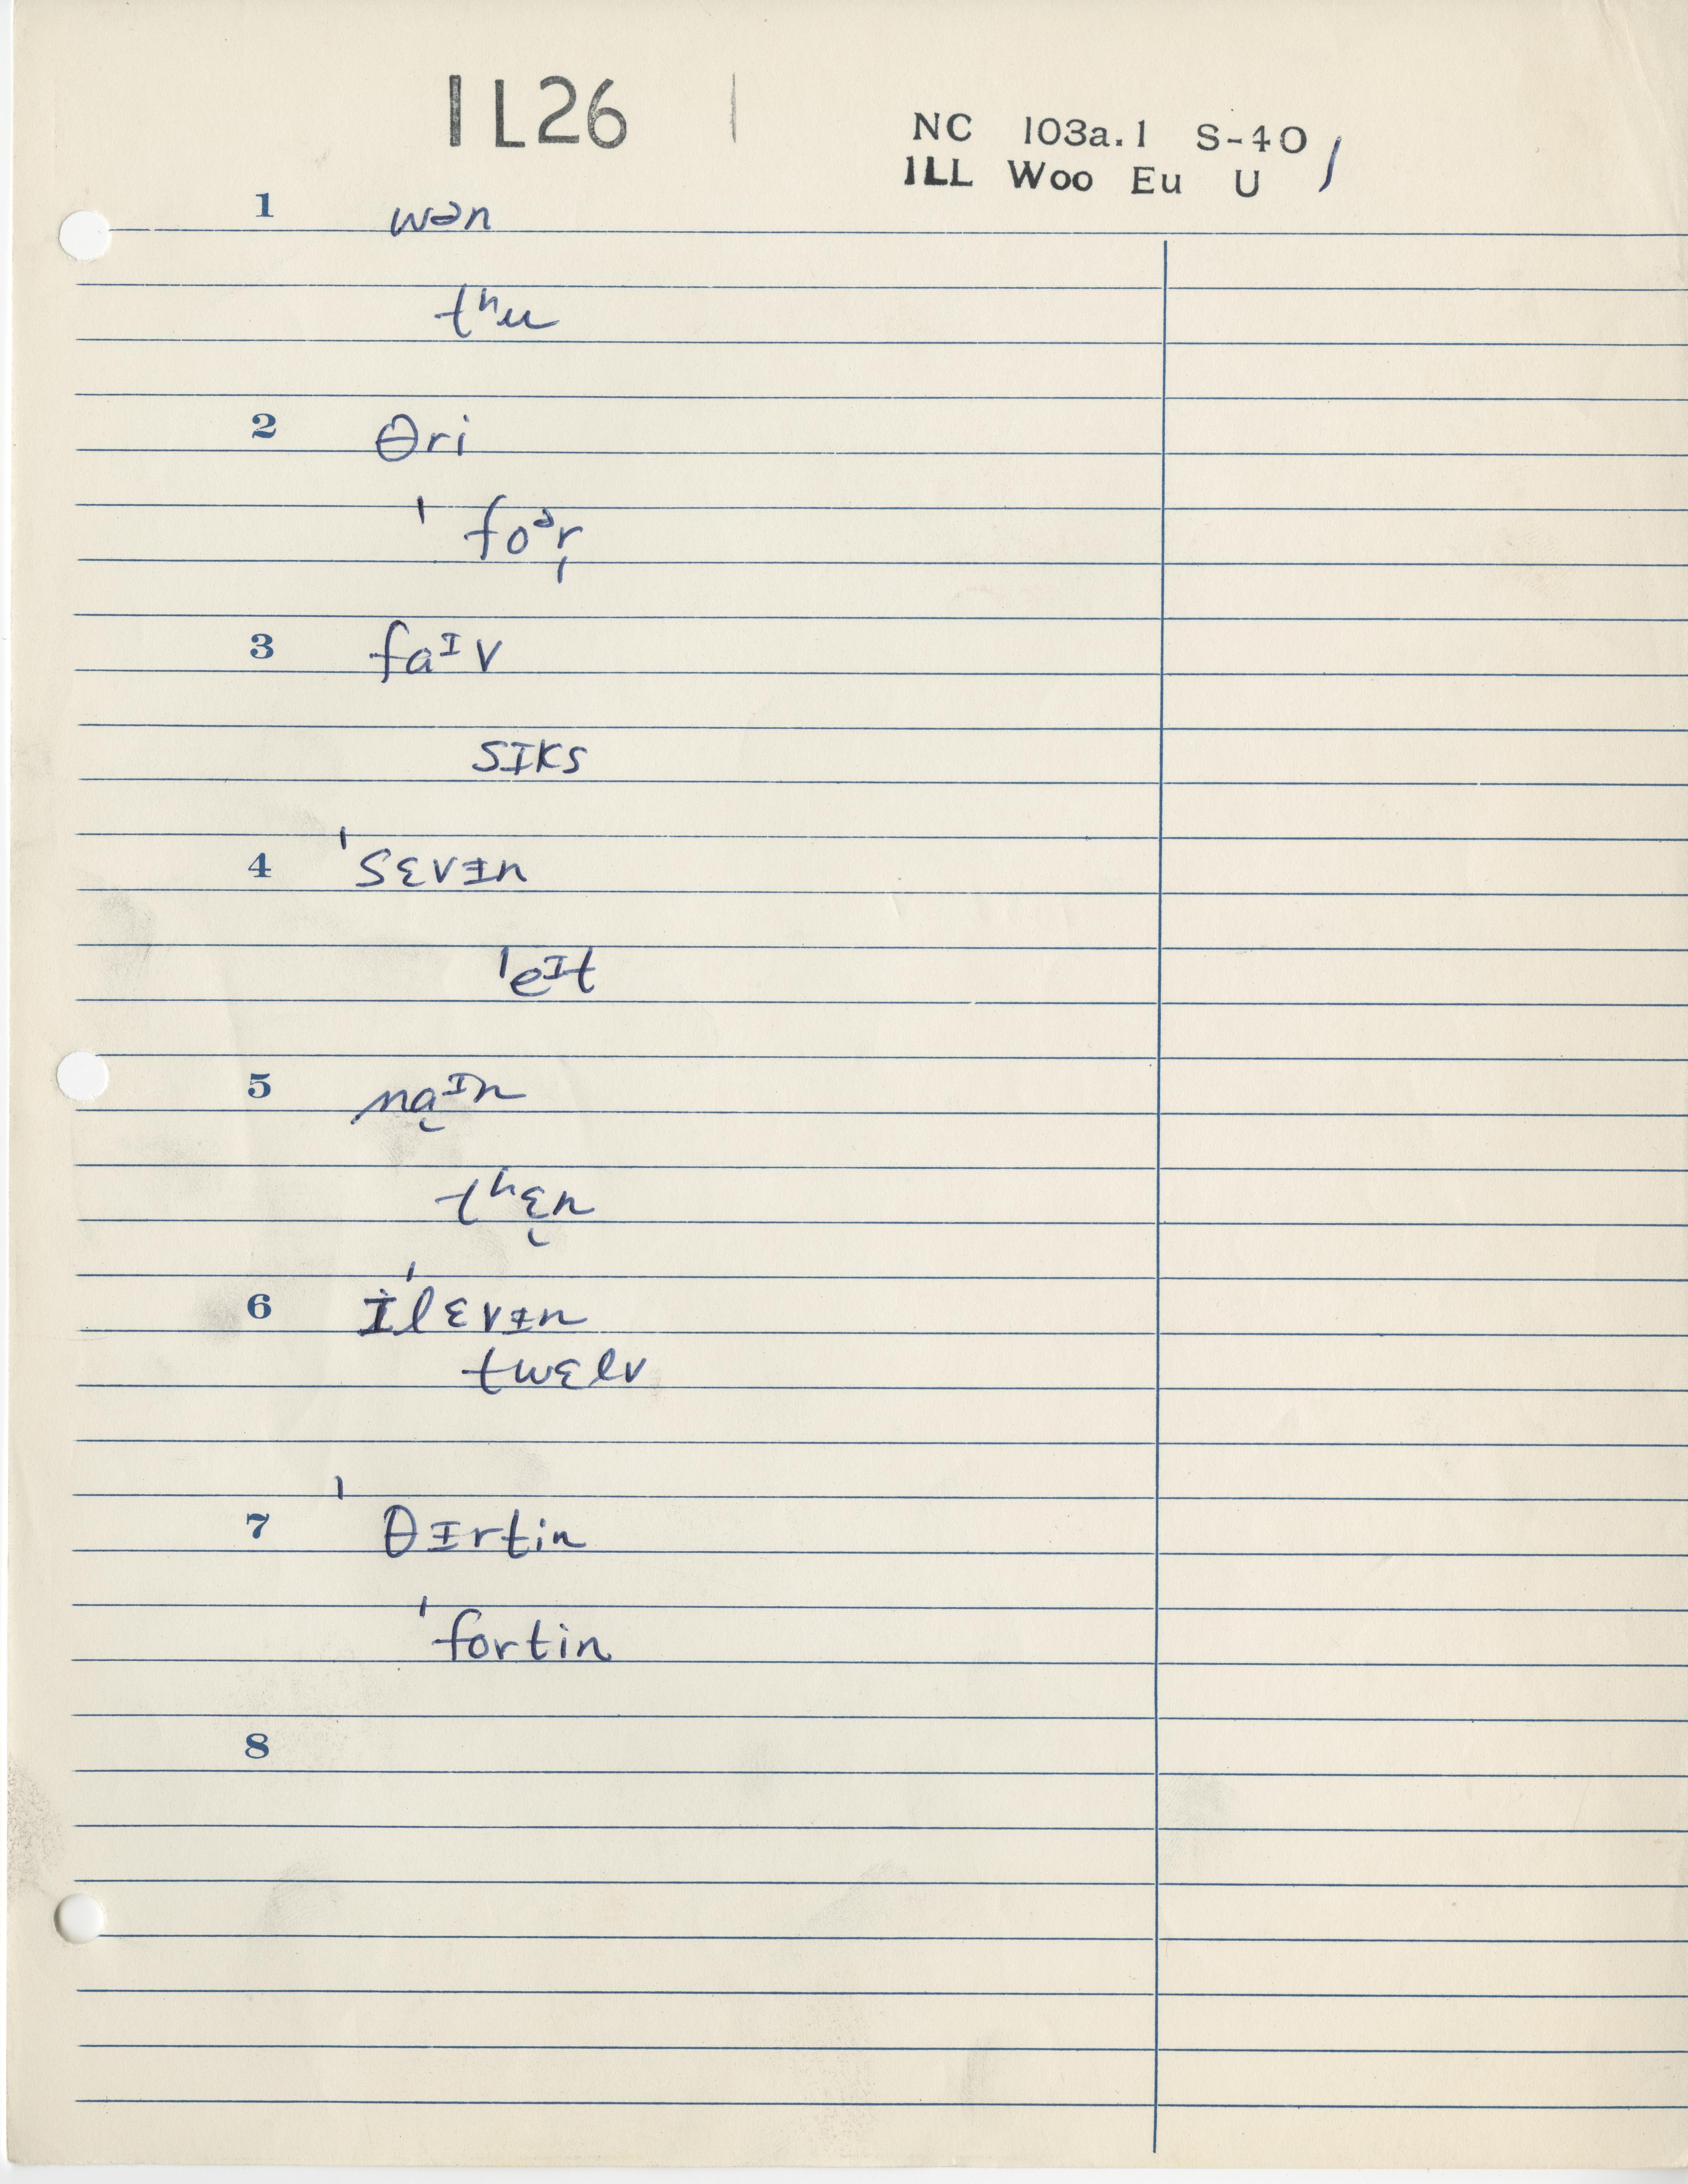 IL26 |
NC 103a.1 S-40 /
ILL Woo Eu U
1 wən
tʰu
2 θri
ˈfoᵊr̩
3 faᶦv
sɪks
4 ˈsɛvɪ̵n
ˈeᶦt
5 na̯ᶦn
tʰɛ̯n
6 ɪˈlɛvɪ̵n
twɛlv
7 ˈθɪ̵rtin
ˈfortin
8